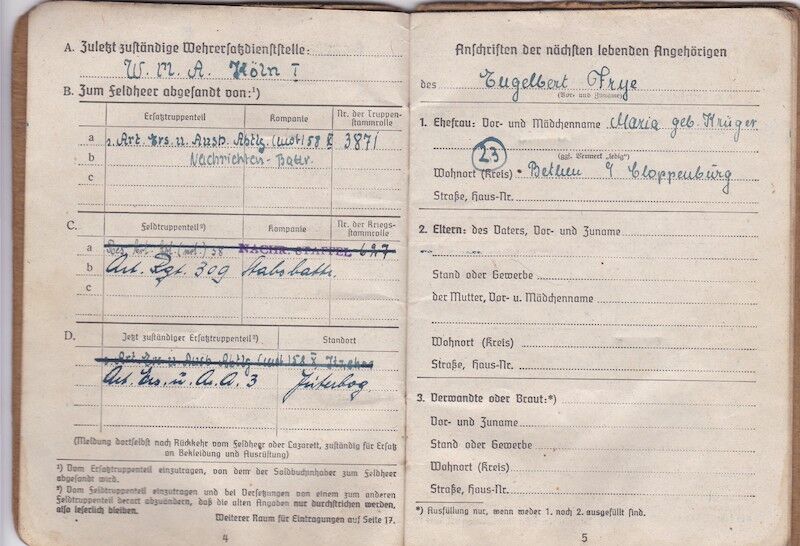 A. Zuletzt zuständige Wehrersatzdienststelle:
W. M. A. Köln I
B. Zum Feldheer abgesandt von:¹)
Ersatztruppenteil Kompanie Nr. der Truppenstammrolle
a Art. Ers. u. Ausb. Abtlg. (mot) 58 3871
b Nachrichten-Battr.
c
C. Feldtruppenteil²) Kompanie Nr. der Kriegsstammrolle
a (mot.) 58 NACHR. STAFFEL 627
b Art. Rgt. 309 Stabsbattr.
c
D. Jetzt zuständiger Ersatztruppenteil²) Standort
Art. Ers. u. Ausb. Abtlg. (mot) 58
Art. Ers. u. A. A. 3 Jüterbog.
(Meldung dortselbst nach Rückkehr vom Feldheer oder Lazarett, zuständig für Ersatz
an Bekleidung und Ausrüstung)
¹) Vom Ersatztruppenteil einzutragen, von dem der Soldbuchinhaber zum Feldheer
abgesandt wird.
²) Vom Feldtruppenteil einzutragen und bei Versetzungen von einem zum anderen
Feldtruppenteil derart abzuändern, daß die alten Angaben nur durchstrichen werden,
also leserlich bleiben.
Weiterer Raum für Eintragungen auf Seite 17.
4
Anschriften der nächsten lebenden Angehörigen
des Engelbert Frye
(Vor- und Zuname)
1. Ehefrau: Vor- und Mädchenname Maria geb. Krüger
(ggf. Vermerk „ledig")
23
Wohnort (Kreis) Bethen / Cloppenburg
Straße, Haus-Nr.
2. Eltern: des Vaters, Vor- und Zuname
Stand oder Gewerbe
der Mutter, Vor- u. Mädchenname
Wohnort (Kreis)
Straße, Haus-Nr.
3. Verwandte oder Braut:*)
Vor- und Zuname
Stand oder Gewerbe
Wohnort (Kreis)
Straße, Haus-Nr.
*) Ausfüllung nur, wenn weder 1. noch 2. ausgefüllt sind.
5